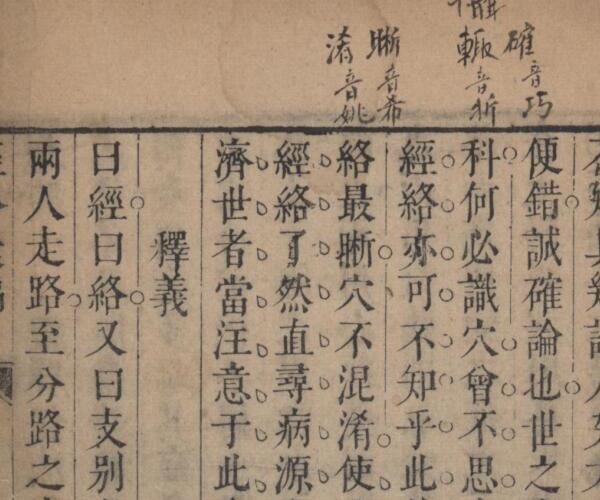 確音巧
輙音折
晰音希
淆音姚
便錯誠確論也世之
科何必識穴曾不思
經絡亦可不知乎此
絡最晰穴不混淆使
經絡了然直尋病源
濟世者當注意于此
釋義
曰經曰絡又曰支別
兩人走路至分路之